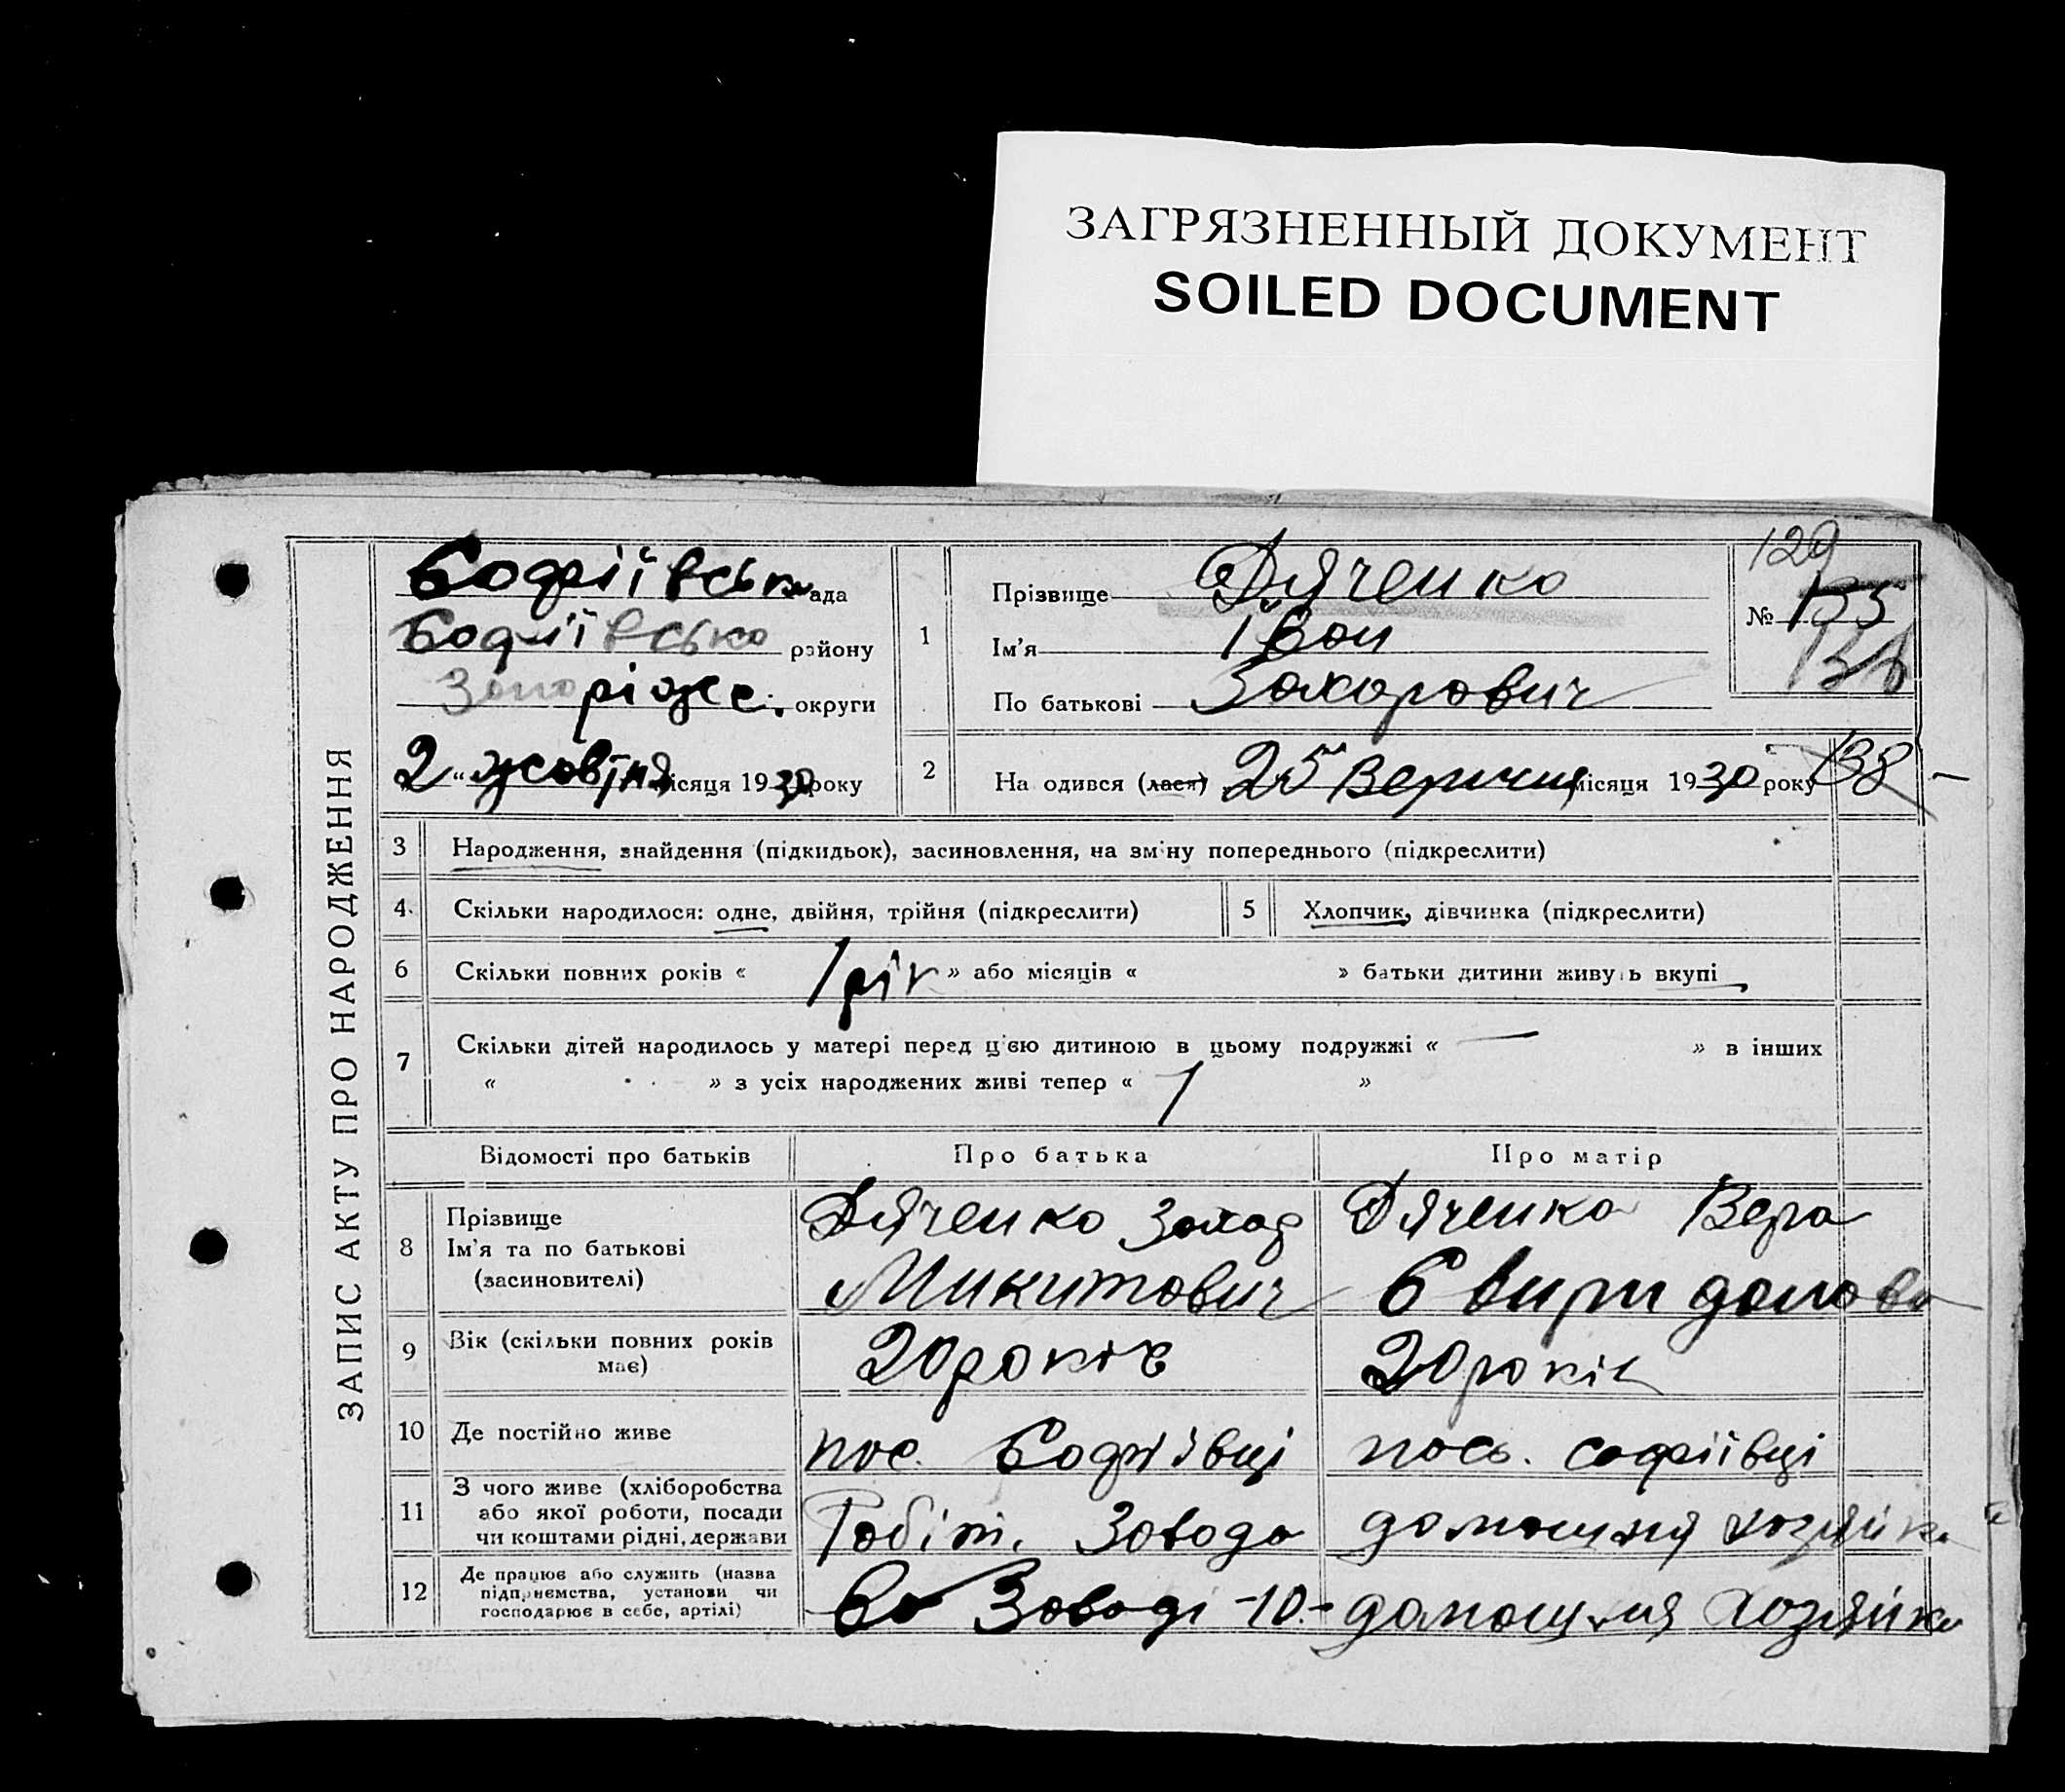 ЗАГРЯЗНЕННЫЙ ДОКУМЕНТ
SOILED DOCUMENT
ЗАПИС АКТУ ПРО НАРОДЖЕННЯ
Софіївська рада
Софіївсько району
Запоріже. округи
2 " жовтня місяця 1930 року
1 Прізвище Дяченко
Ім'я Іван
По батькові Захарович
129
№ 135
138
2 На одився (лася) 25 Вересня місяця 1930 року
3 Народження, знайдення (підкидьок), засиновлення, на зміну попереднього (підкреслити)
4. Скільки народилося: одне, двійня, трійня (підкреслити) 5 Хлопчик, дівчинка (підкреслити)
6 Скільки повних років « 1 рік » або місяців « » батьки дитини живуть вкупі
7 Скільки дітей народилось у матері перед цією дитиною в цьому подружжі « — » в інших
« » з усіх народжених живі тепер « 1 »
Відомості про батьків Про батька Про матір
8 Прізвище
Ім'я та по батькові
(засиновителі)
Дяченко Захар
Микитович
Дяченко Вера
Свиридонова
9 Вік (скільки повних років
має)
20 років
20 років
10 Де постійно живе
пос. Софіївці
пось. софіївці
11 З чого живе (хліборобства
або якої роботи, посади
чи коштами рідні, держави
Робіт. Завода
домашня хозяйка
12 Де працює або служить (назва
підприємства, установи чи
господарює в себе, артілі)
На Заводі -10.-
домашния Хозяйка